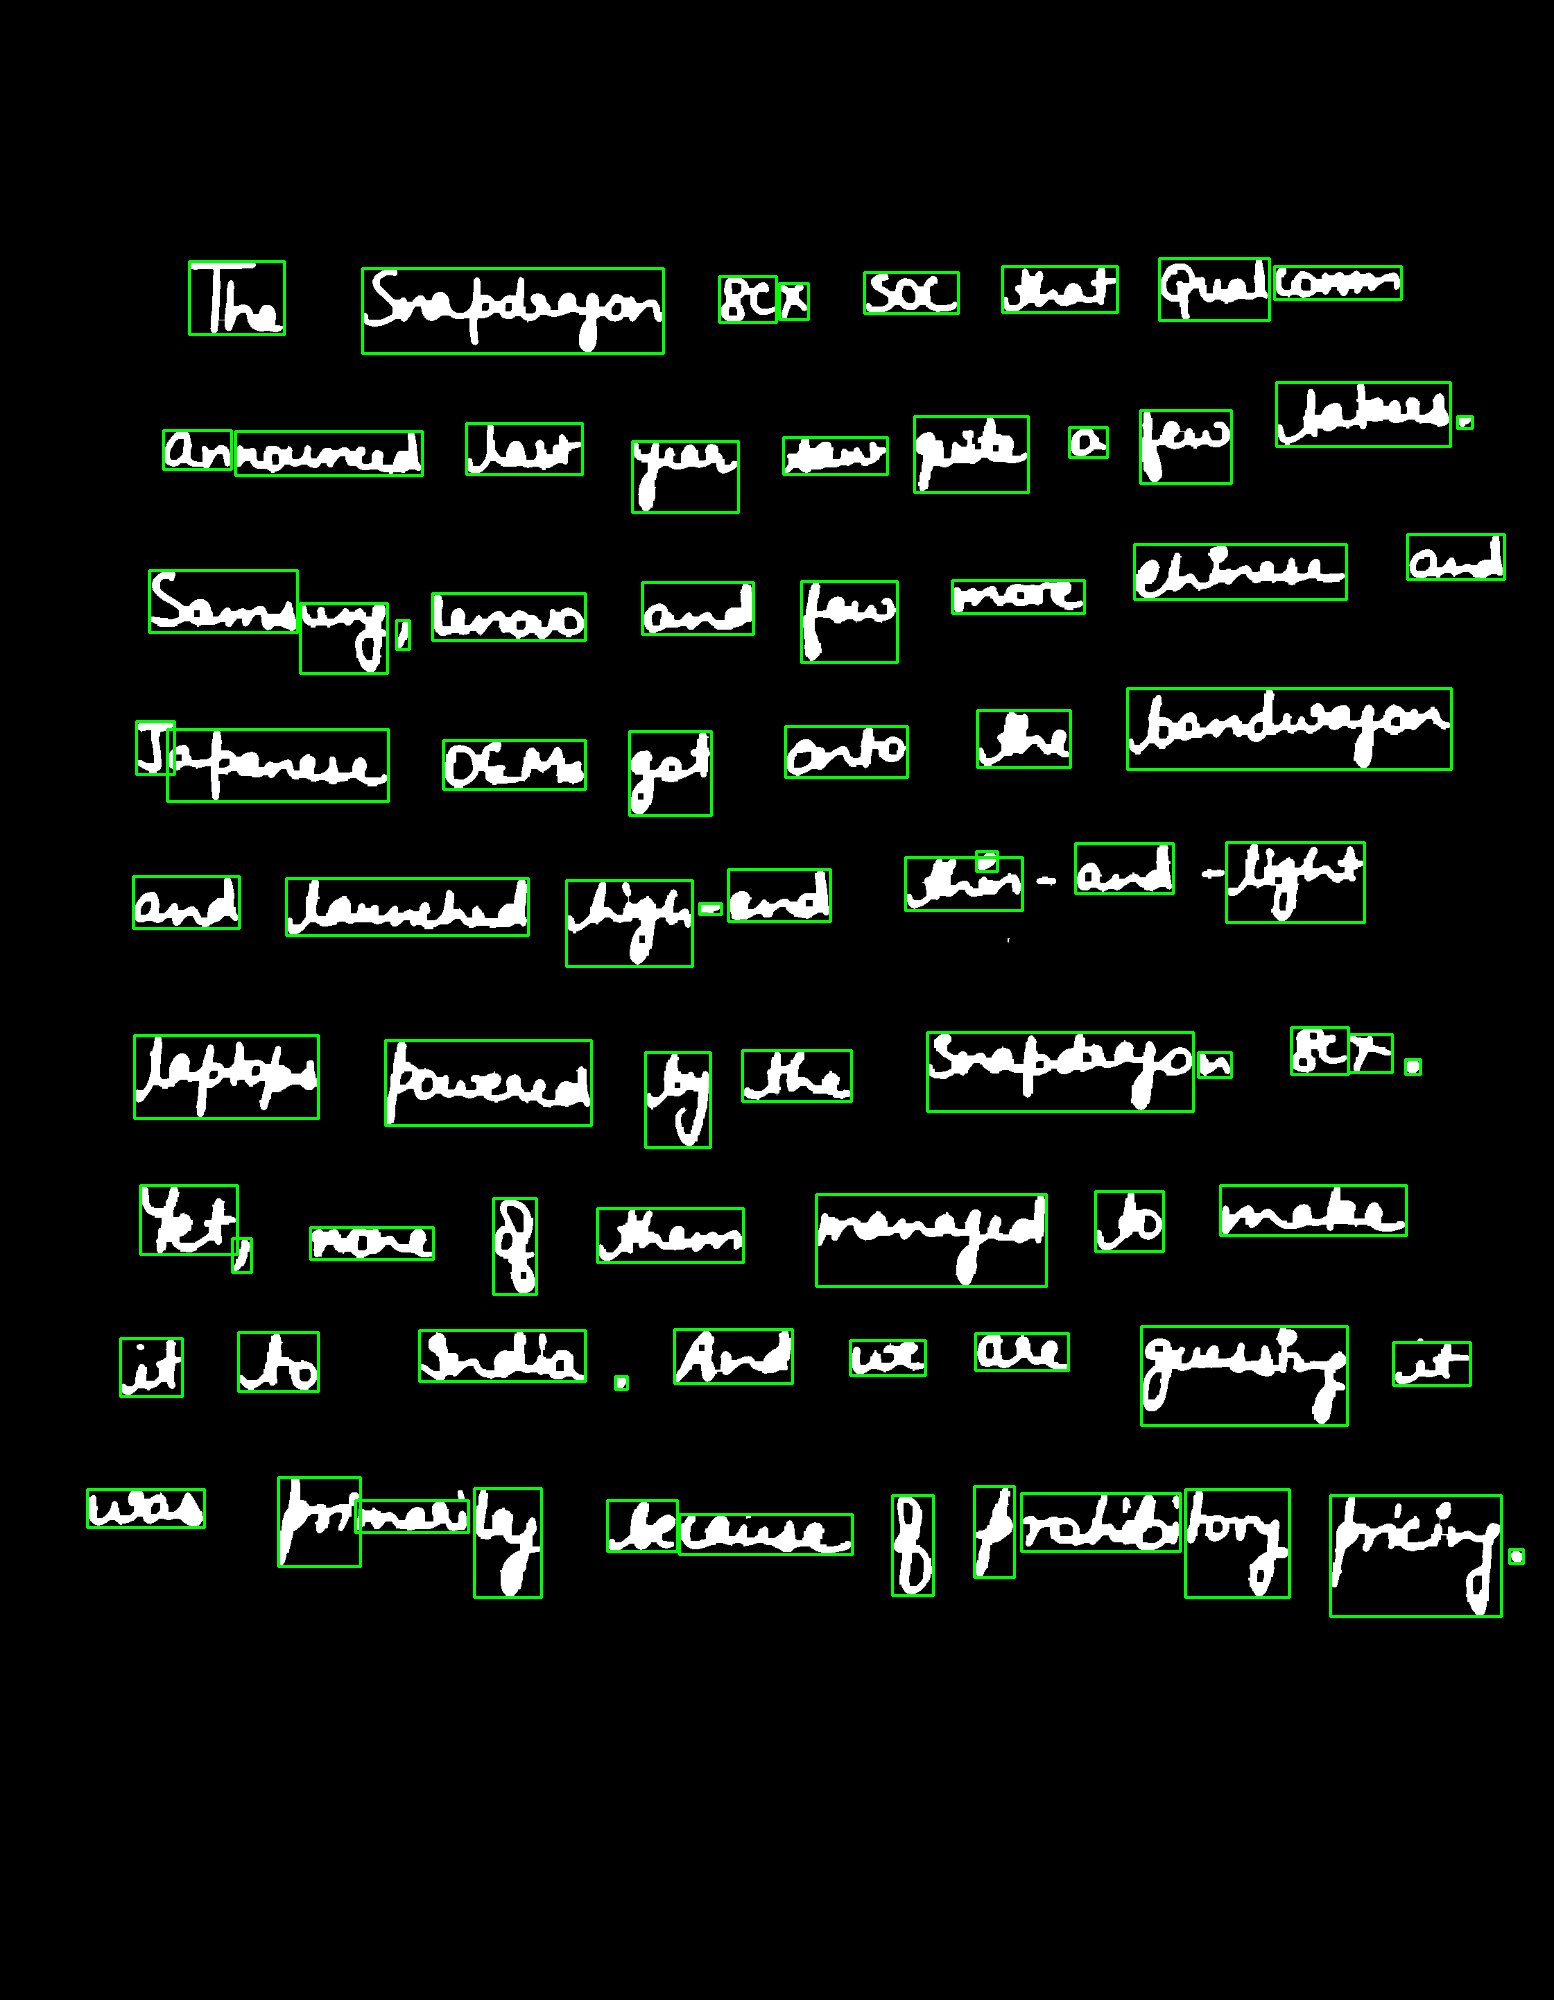 The Snapdragon 8cx SOC that Qualcomm
announced last year saw quite a few takers.
Samsung, Lenovo and few more Chinese and
Japanese OEMs got onto the bandwagon
and launched high-end thin-and-light
laptops powered by the Snapdragon 8cx.
Yet, none of them managed to make
it to India. And we are guessing it
was primarily because of prohibitory pricing.